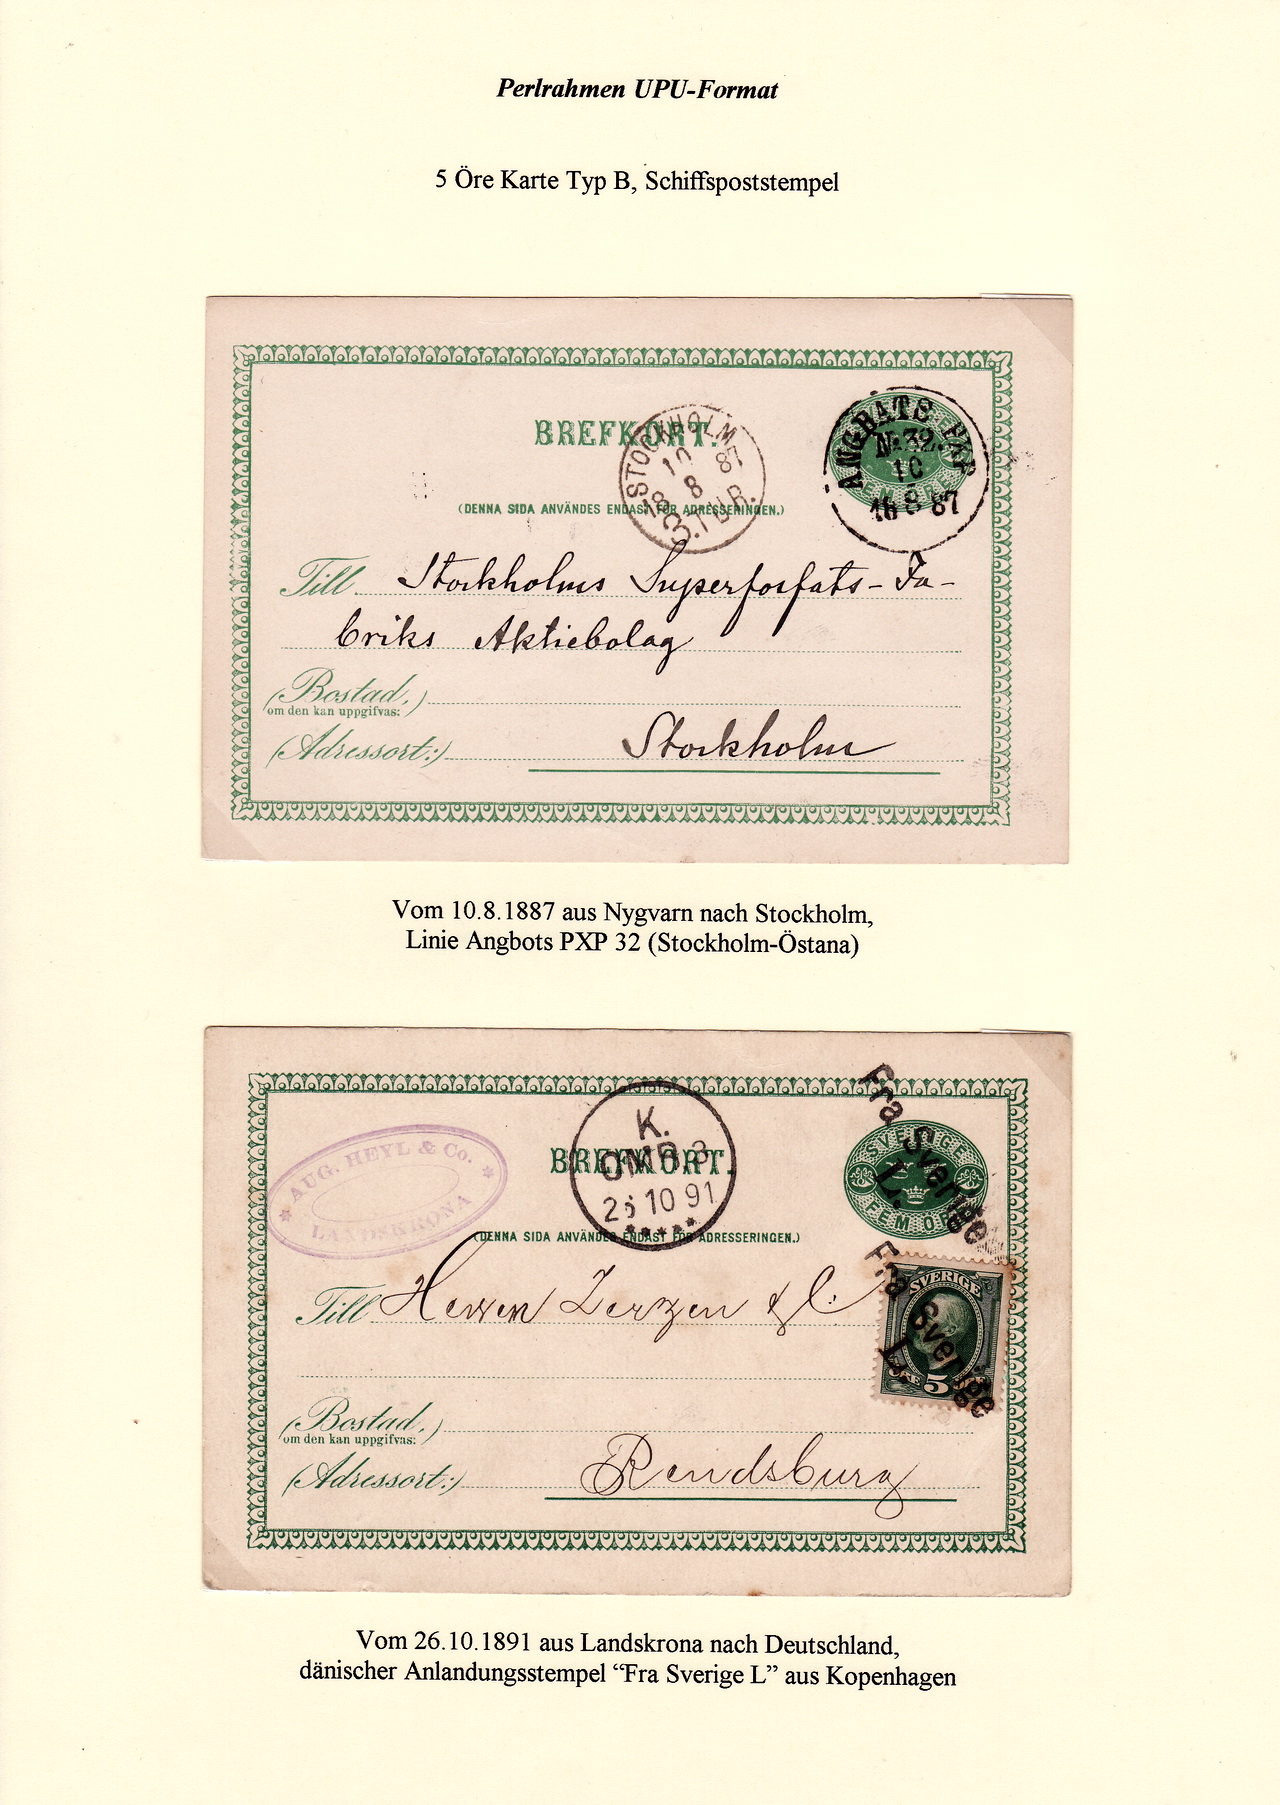 Perlrahmen UPU-Format
5 Öre Karte Typ B, Schiffspoststempel
BREFKORT.
STOCKHOLM
10 87
18 8
3.TUR.
ÅNGBÅTS PXP
№ 32.
10
8 87
(DENNA SIDA ANVÄNDES ENDAST FÖR ADRESSERINGEN.)
Till Stockholms Superfosfats-Fa-
briks Aktiebolag
(Bostad,)
om den kan uppgifvas:
(Adressort:) Stockholm
Vom 10.8.1887 aus Nygvarn nach Stockholm,
Linie Angbots PXP 32 (Stockholm-Östana)
AUG. HEYL & Co.
LANDSKRONA
BREFKORT.
K.
OMB.3
26 10 91
SVERIGE
FEM ÖRE
Fra Sverige
L.
(DENNA SIDA ANVÄNDES ENDAST FÖR ADRESSERINGEN.)
Till Herren Zerzen & C:
SVERIGE
5
Fra Sverige
L.
(Bostad,)
om den kan uppgifvas:
(Adressort:) Rendsburg
Vom 26.10.1891 aus Landskrona nach Deutschland,
dänischer Anlandungsstempel “Fra Sverige L” aus Kopenhagen